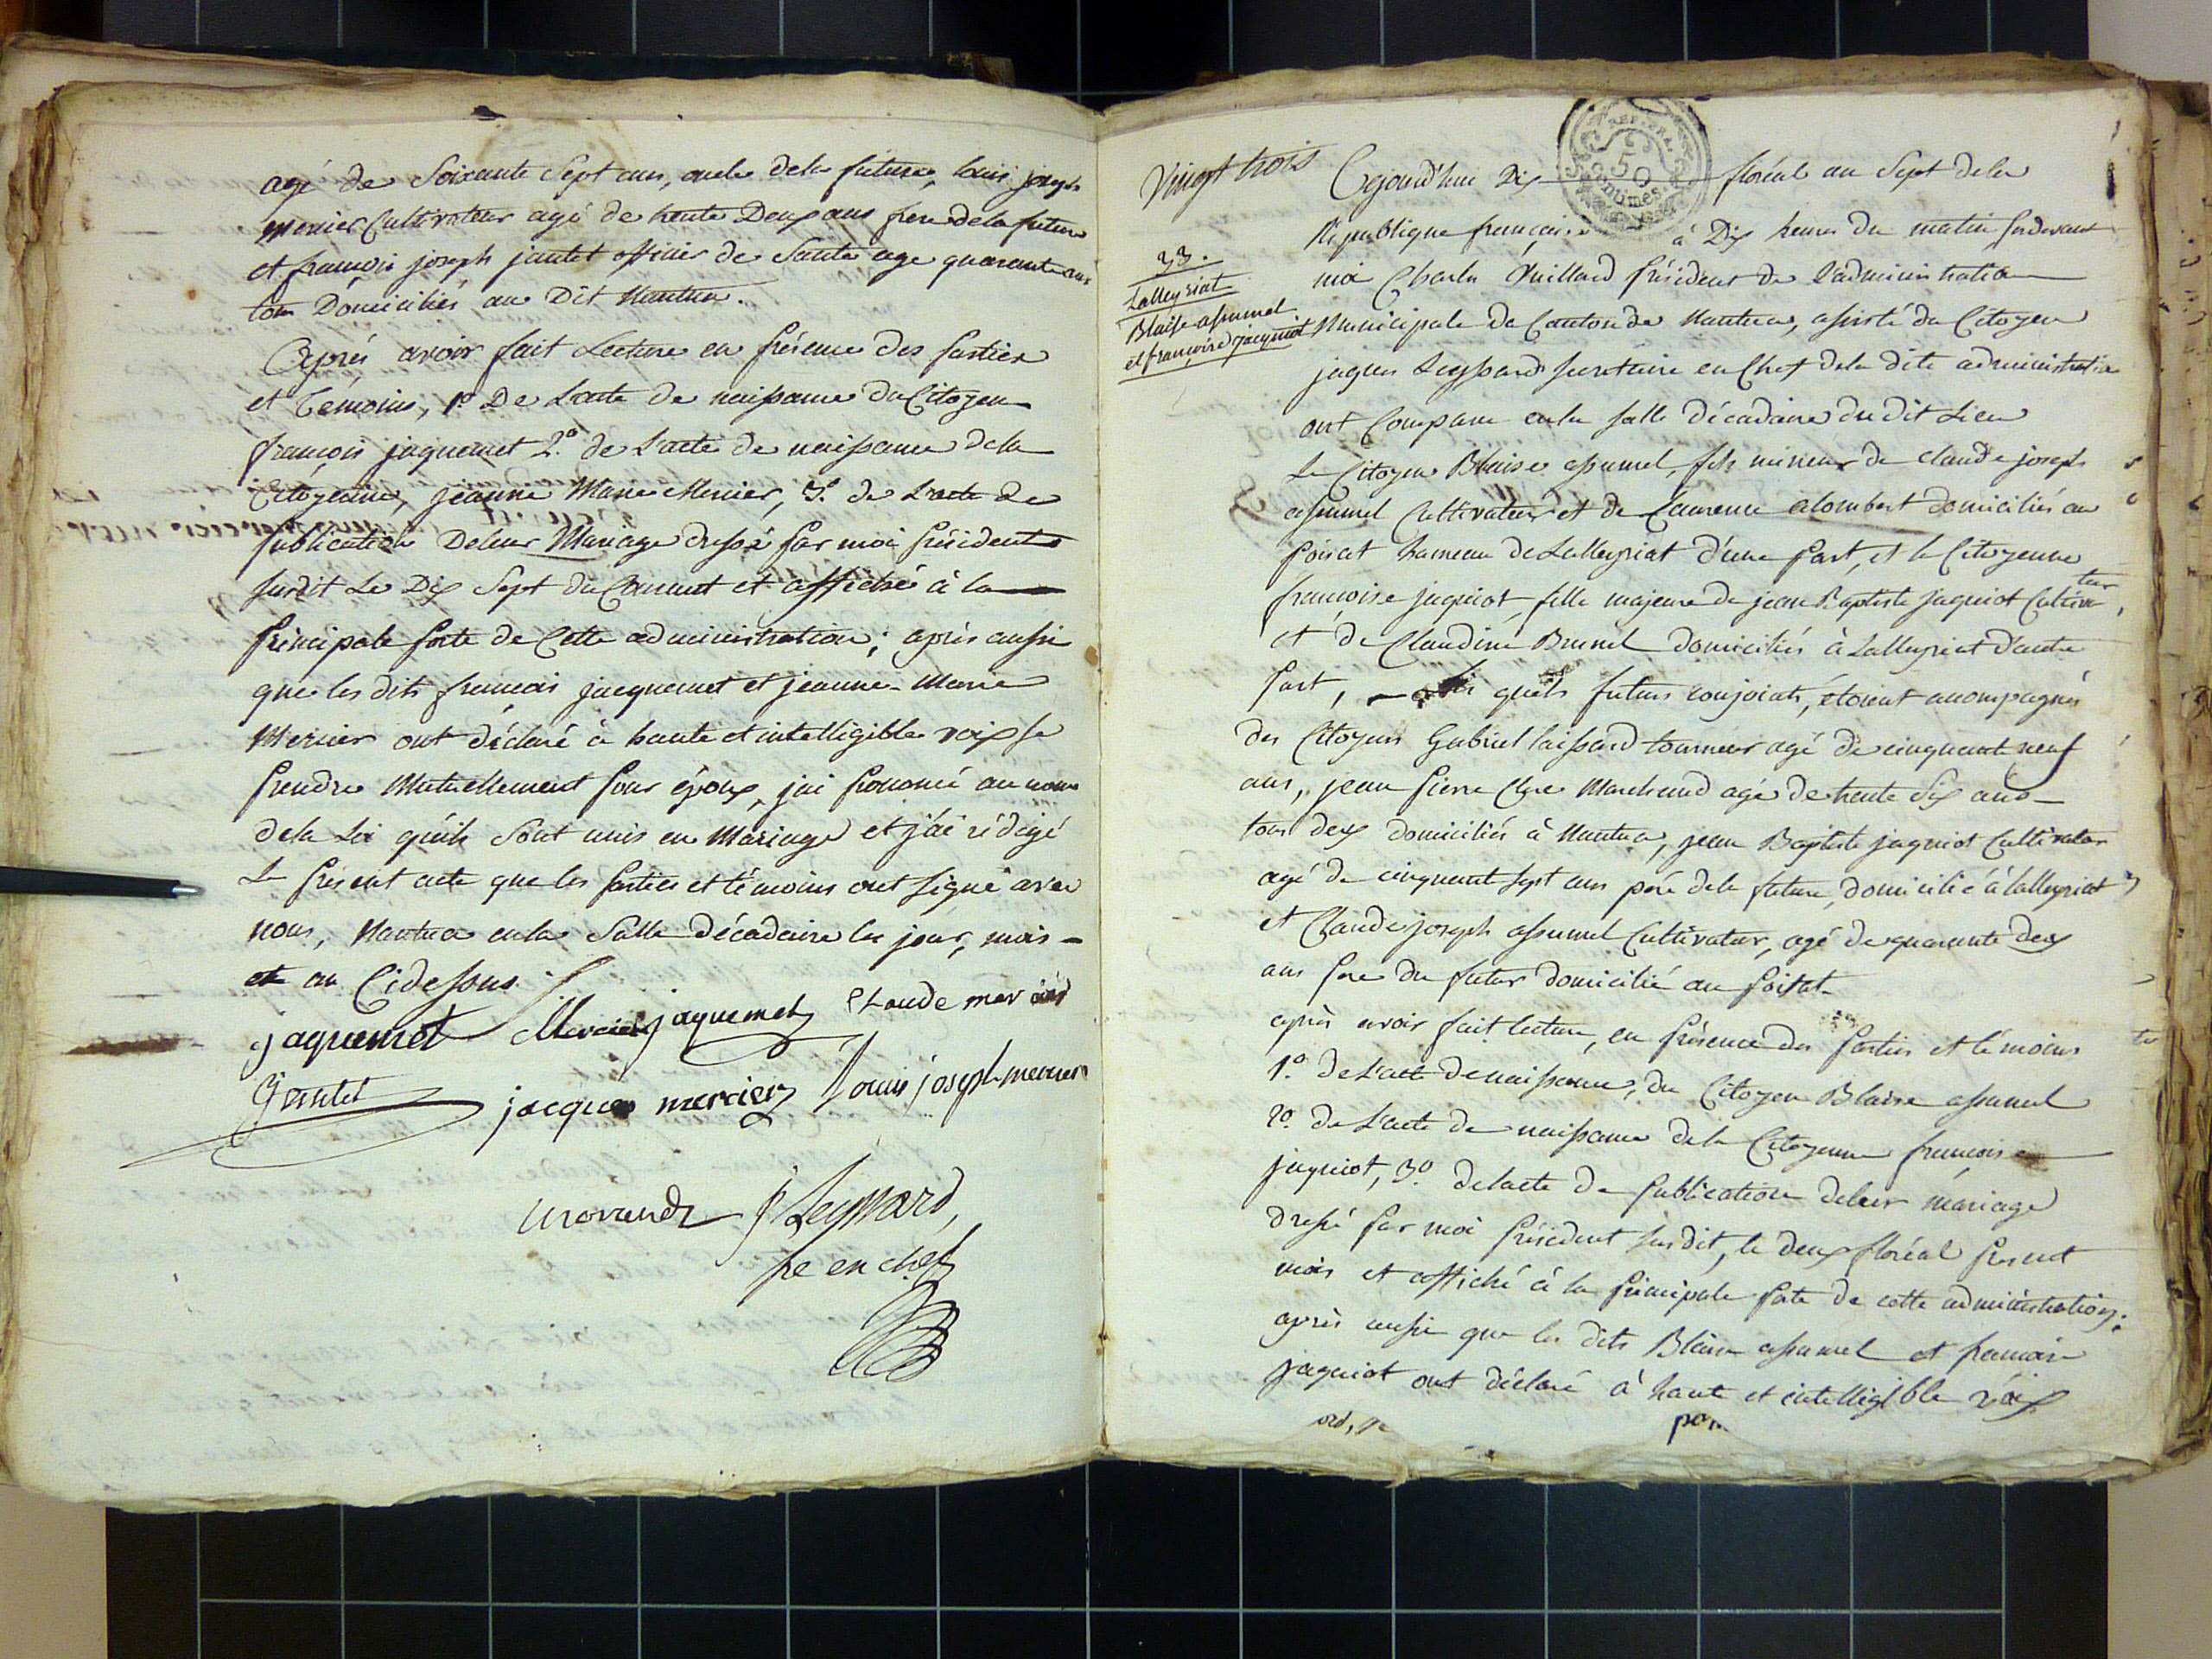 agé de Soixante Sept ans, oncle dela future, louis joseph
mercier Cultivateur agé de trente Deux ans frere dela future
et françois joseph jantet officier de Santé age quarante ans
tous Domiciliés au Dit Nantua.
Après avoir fait Lecture en présence des parties
et Temoins, 1º De L'acte de naissance du Citoyen
françois jaquemet 2º. de L'acte de naissance dela
Citoyenne, jeanne Marie Mercier, 3º. de L'acte de
publication Deleur Mariage dressé par moi président
susdit Le Dix Sept du Courant et affiché à la
principale porte de Cette administration; après aussi
que les dits françois jacquemet et jeanne-Marie
Mercier ont déclaré à haute et intelligible voix se
prendre Mutuellement pour époux, jai prononcé au nom
dela Loi qu'ils sont unis en Mariage et j'ai rédigé
Le présent acte que les parties et témoins ont signé avec
nous, Nantua enla Salle décadaire les jour, mois -
et an Cidessus.
jaquemet Mercier jaquemet Claude mercier
Jantet jacques mercier Louis joseph mercier
J Leyssard,
re en chef
Vingt trois
33.
Lalleyriat
Blaise assumel
et françoise jaquiot
Cejourd'hui Dix floréal an Sept dela
50
Centimes
République française à Dix heures du matin pardevant
moi Charles Quillard président de L'administration
Municipale du Canton de Nantua, assisté du Citoyen
jaques Leyssard secretaire en Chef dela dite administration
ont Comparu enla salle décadaire du dit Lieu
Le Citoyen Blaise assumel, fils mineur de claude joseph
assumel Cultivateur et de Laurence alombert domiciliés au
poisat hameau de Lalleyriat d'une part, et la Citoyenne
françoise jaquiot fille majeure de jean Baptiste jaquiot Cultivateur,
et de Claudine Brunel domiciliés à Lalleyriat d'autre
part, - les quels futurs conjoints, étoient accompagnés
des Citoyens Gabriel laissard tourneur agé de cinquante neuf
ans, jean pierre Marchand agé de trente Six ans -
tous deux domiciliés à Nantua, jean Baptiste jaquiot Cultivateur
agé de cinquante sept ans péré dela future, domicilié à lalleyriat
et Claude joseph assumel Cultivateur, agé de quarante deux
ans pere du futur domicilié au poisat -
après avoir fait lecture, en présence des parties et témoins
1º. de L'acte de naissance, du Citoyen Blaise assumel
2º. de L'acte de naissance dela Citoyenne françoise
jaquiot, 3º. delacte de publication deleur mariage
dressé par moi président sus dit, le deux floréal présent
mois et affiché à la principale porte de cette administration;
après aussi que les dits Blaise assumel et françoise
jaquiot ont déclaré à haute et intelligible voix